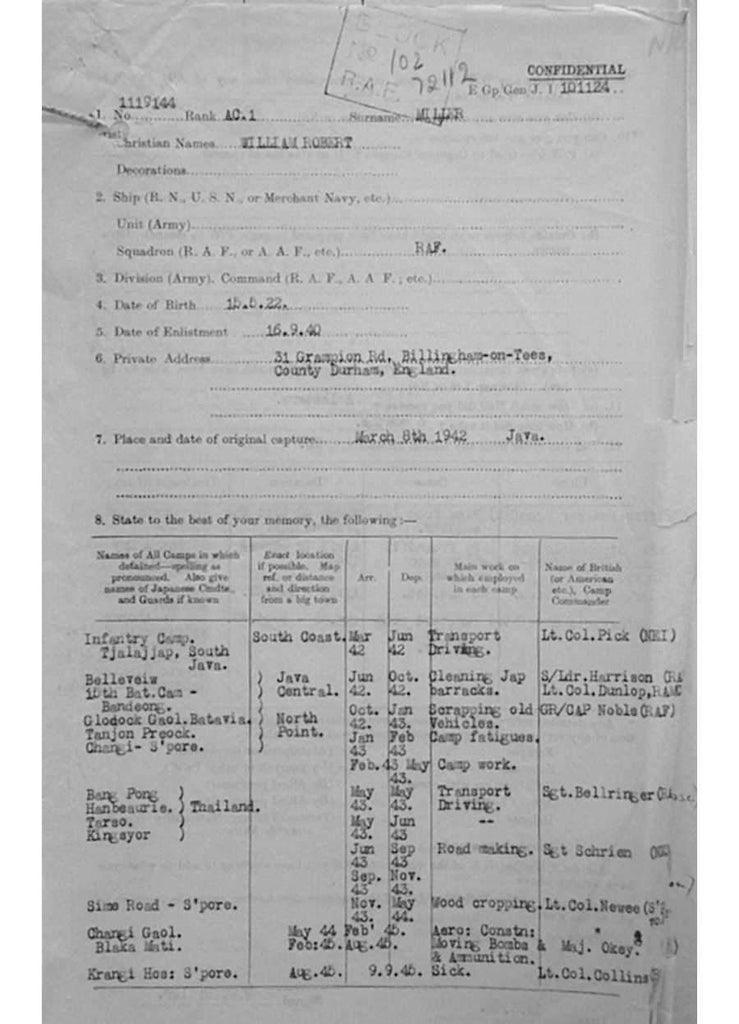 102
R.A.F. 72112
CONFIDENTIAL
E Gp/Gen J. I 101124..
1119144
1. No............Rank AC.1 Surname MILLER
Christian Names.... WILLIAM ROBERT
Decorations
2. Ship (R. N., U. S. N., or Merchant Navy, etc.)
Unit (Army)
Squadron (R. A. F., or A. A. F., etc.) RAF.
3. Division (Army). Command (R. A. F., A. A F. ; etc.)
4. Date of Birth 15.5.22.
5. Date of Enlistment 16.9.40
6. Private Address 31 Grampion Rd, Billingham-on-Tees,
County Durham, England.
7. Place and date of original capture March 8th 1942 Java.
8. State to the best of your memory, the following :—
Names of All Camps in which Exact location Main work on Name of British
detained—spelling as if possible. Map Arr. Dep. which employed (or American
pronounced. Also give ref. or distance in each camp etc.), Camp
names of Japanese Cmdts., and direction Commander
and Guards if known from a big town
Infantry Camp. South Coast. Mar Jun Transport Lt.Col.Pick (NEI)
Tjalajjap, South 42 42 Driving.
Java.
Belleveiw ) Java Jun Oct. Cleaning Jap S/Ldr.Harrison (RA
15th Bat.Cam - ) Central. 42. 42. barracks. Lt.Col.Dunlop,RAMC
Bandeong. )
Oct. Jan Scrapping old GR/CAP Noble(RAF)
Glodock Gaol.Batavia. ) North 42. 43. Vehicles.
Tanjon Preock. ) Point. Jan Feb Camp fatigues.
Changi- S'pore. ) 43 43
Feb.43 May Camp work.
43.
Bang Pong ) May May Transport Sgt.Bellringer
Hanbeaurie. ) Thailand. 43. 43. Driving.
Tarso. ) May Jun --
Kingsyor ) 43. 43
Jun Sep Road making. Sgt Schrien
43 43
Sep. Nov.
43 43.
Sime Road - S'pore. Nov. May Wood cropping. Lt.Col.Newee
43. 44.
Changi Gaol. May 44 Feb' 45. Aero: Constn: " "
Blaka Mati. Feb:45. Aug.45. Moving Bombs & Maj. Okey.
& Ammunition.
Krangi Hos: S'pore. Aug.45. 9.9.45. Sick. Lt.Col.Collins